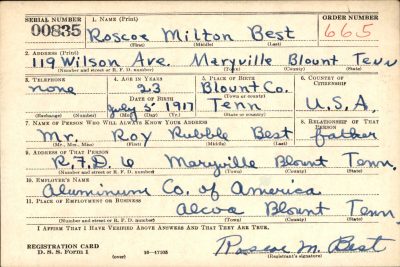 SERIAL NUMBER 1. NAME (Print) ORDER NUMBER
00835 Roscoe Milton Best 665
(First) (Middle) (Last)
2. ADDRESS (Print)
119 Wilson Ave. Maryville Blount Tenn
(Number and street or R. F. D. number) (Town) (County) (State)
3. TELEPHONE 4. AGE IN YEARS 5. PLACE OF BIRTH 6. COUNTRY OF CITIZENSHIP
none 23 Blount Co.
DATE OF BIRTH (Town or county)
July 5 1917 Tenn U.S.A.
(Exchange) (Number) (Mo.) (Day) (Yr.) (State or country)
7. NAME OF PERSON WHO WILL ALWAYS KNOW YOUR ADDRESS 8. RELATIONSHIP OF THAT PERSON
Mr. Roy Rubble Best father
(Mr., Mrs., Miss) (First) (Middle) (Last)
9. ADDRESS OF THAT PERSON
R.F.D. 6 Maryville Blount Tenn.
(Number and street or R. F. D. number) (Town) (County) (State)
10. EMPLOYER'S NAME
Aluminum Co. of America
11. PLACE OF EMPLOYMENT OR BUSINESS
Alcoa Blount Tenn.
(Number and street or R. F. D. number) (Town) (County) (State)
I AFFIRM THAT I HAVE VERIFIED ABOVE ANSWERS AND THAT THEY ARE TRUE.
Roscoe M. Best
REGISTRATION CARD
D. S. S. Form 1 (over) 16-17105 (Registrant's signature)